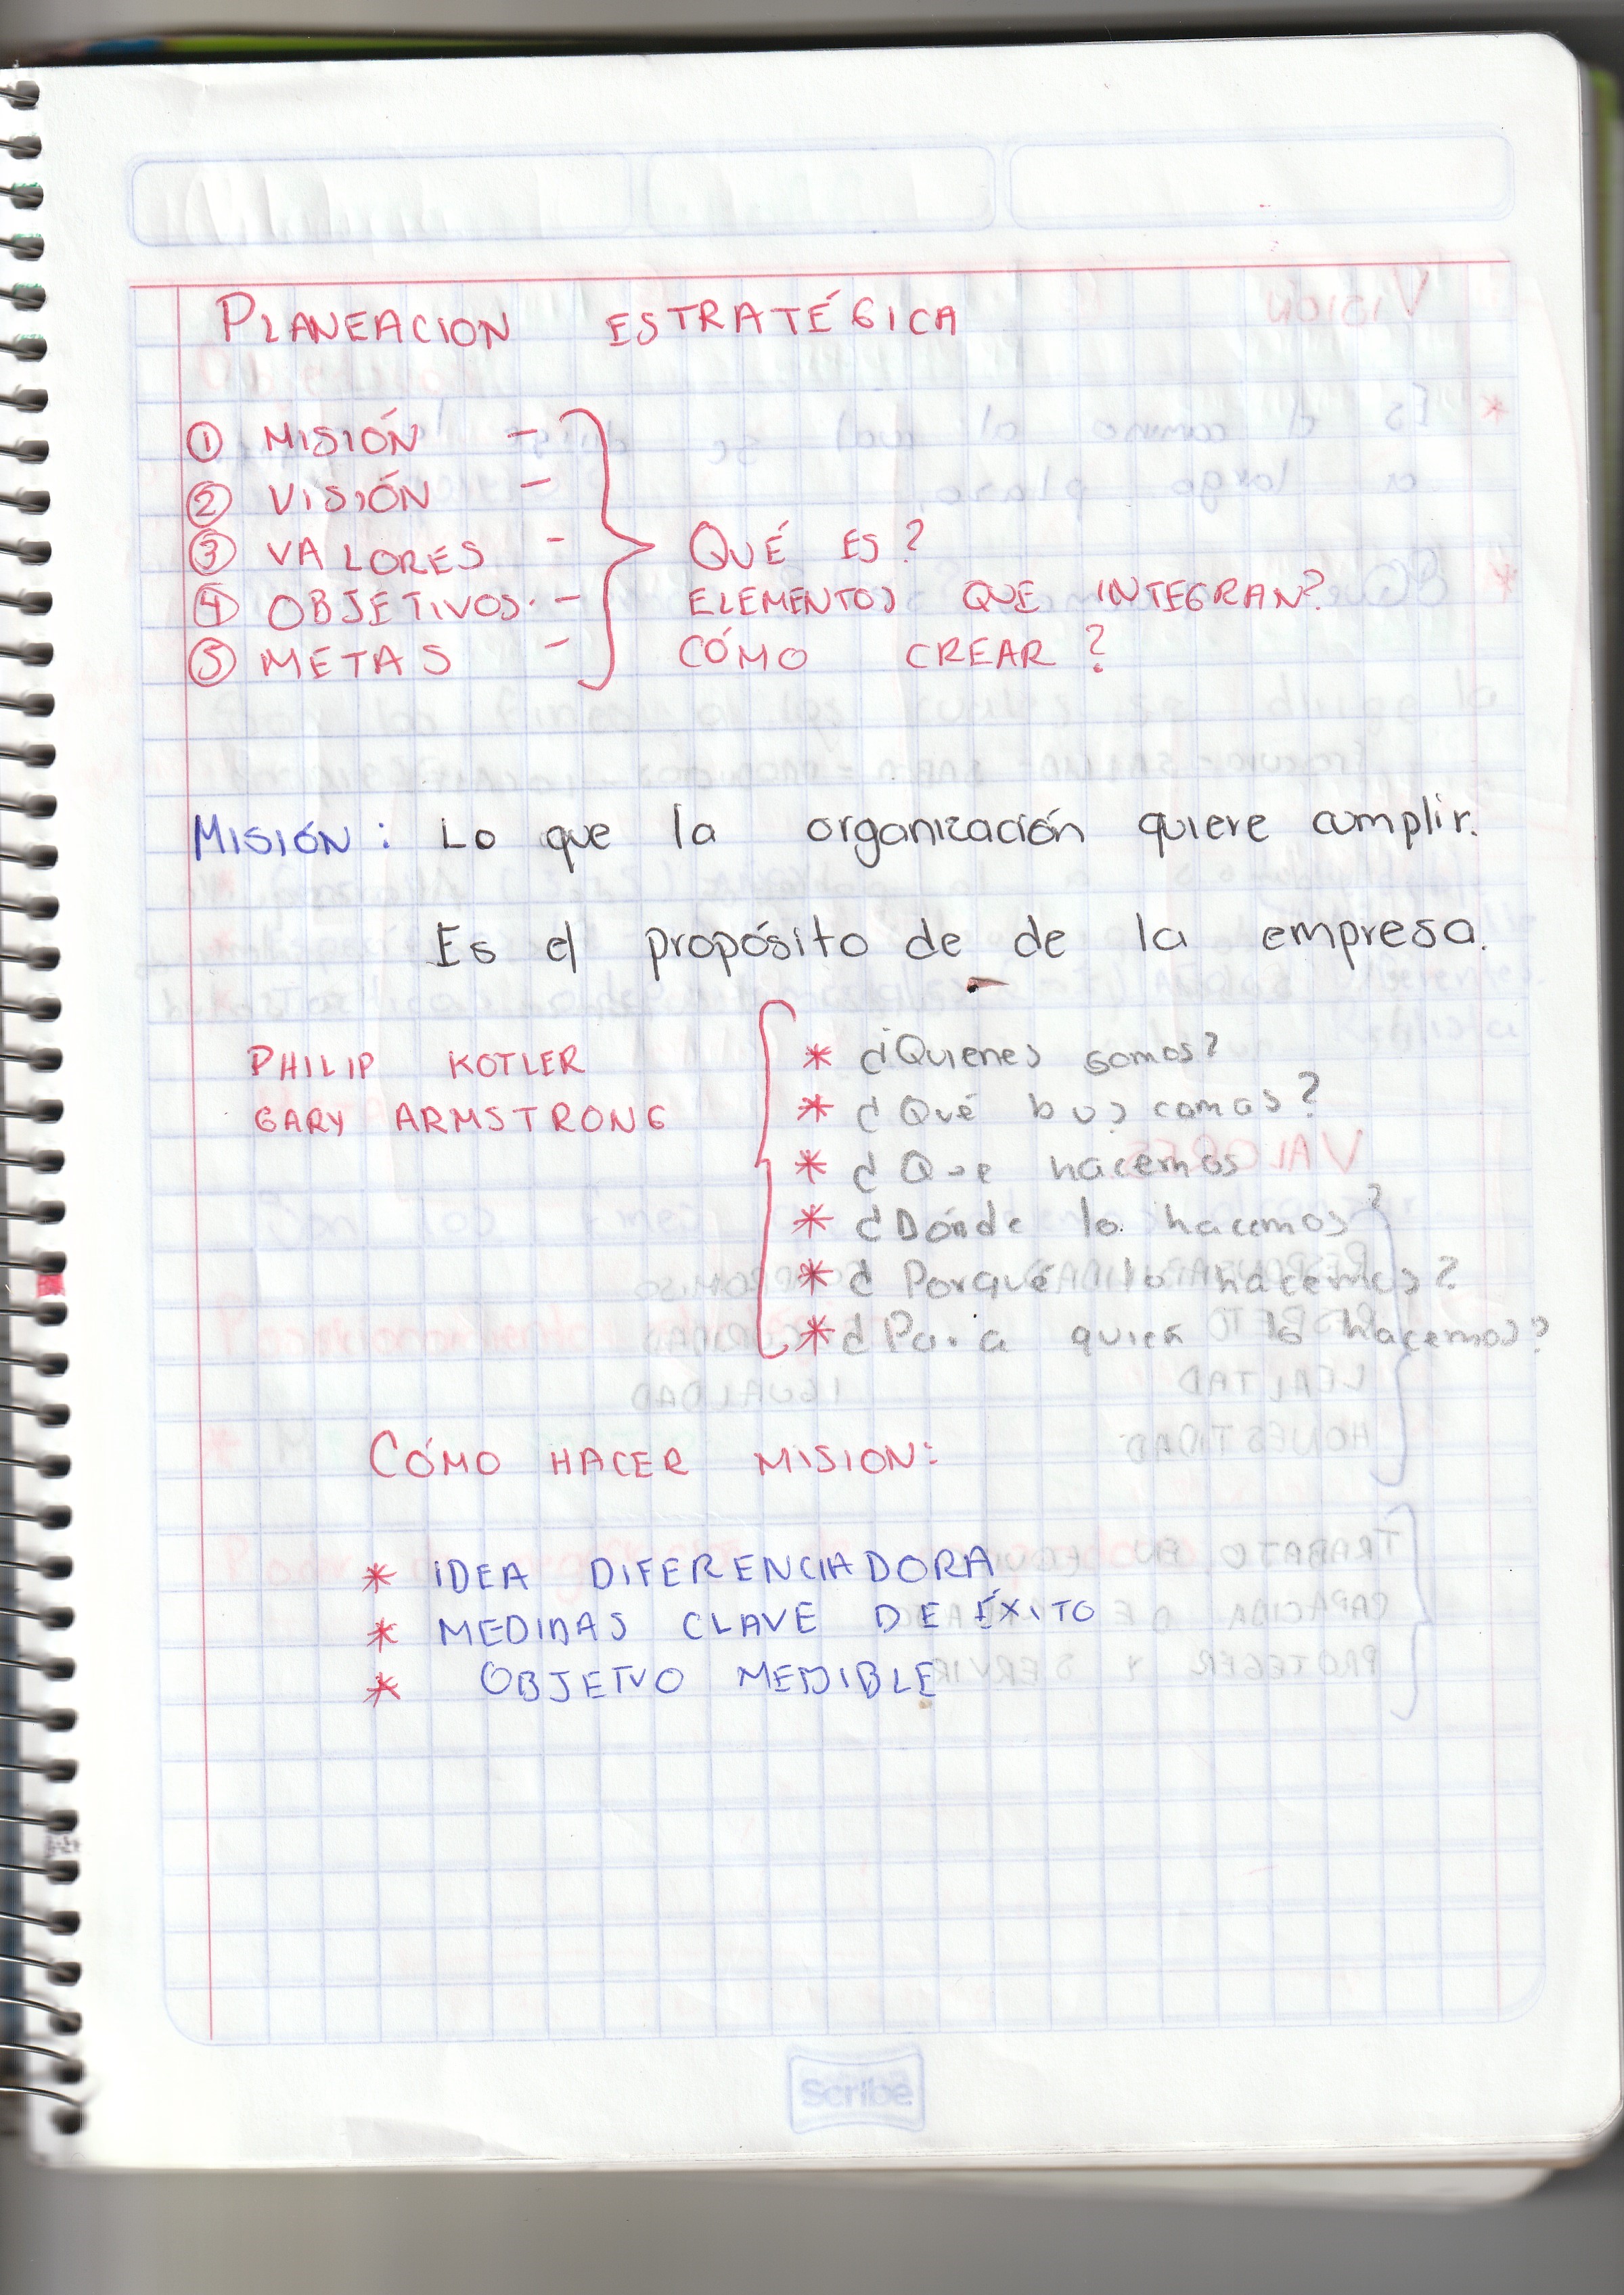 PLANEACION ESTRATÉGICA
① MISIÓN -
② VISIÓN -
③ VALORES -
④ OBJETIVOS. -
⑤ METAS -
QUÉ ES?
ELEMENTOS QUE INTEGRAN?
CÓMO CREAR?
MISIÓN: Lo que la organización quiere cumplir.
Es el propósito de de la empresa.
PHILIP KOTLER
GARY ARMSTRONG
* ¿Quienes somos?
* ¿Qué buscamos?
* ¿Que hacemos
* ¿Dónde lo hacemos?
* ¿Porqué lo hacemos?
* ¿Para quien lo hacemos?
CÓMO HACER MISION:
* IDEA DIFERENCIADORA
* MEDIDAS CLAVE DE ÉXITO
* OBJETVO MEDIBLE
Scribe